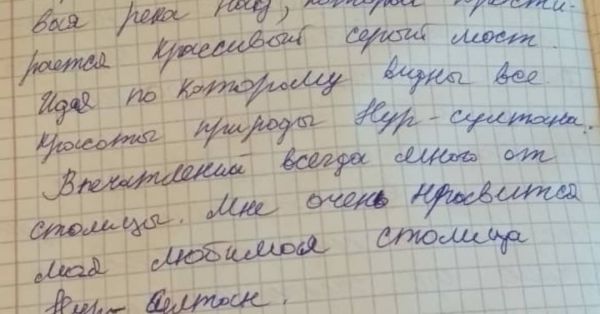 вая река над, которой прости-
рается крассивый серый мост.
Идя по которому видны все
красоты природы Нур-султана.
Впечатлений всегда много от
столицы. Мне очень нравится
моя любимая столица
Нур-Султан.